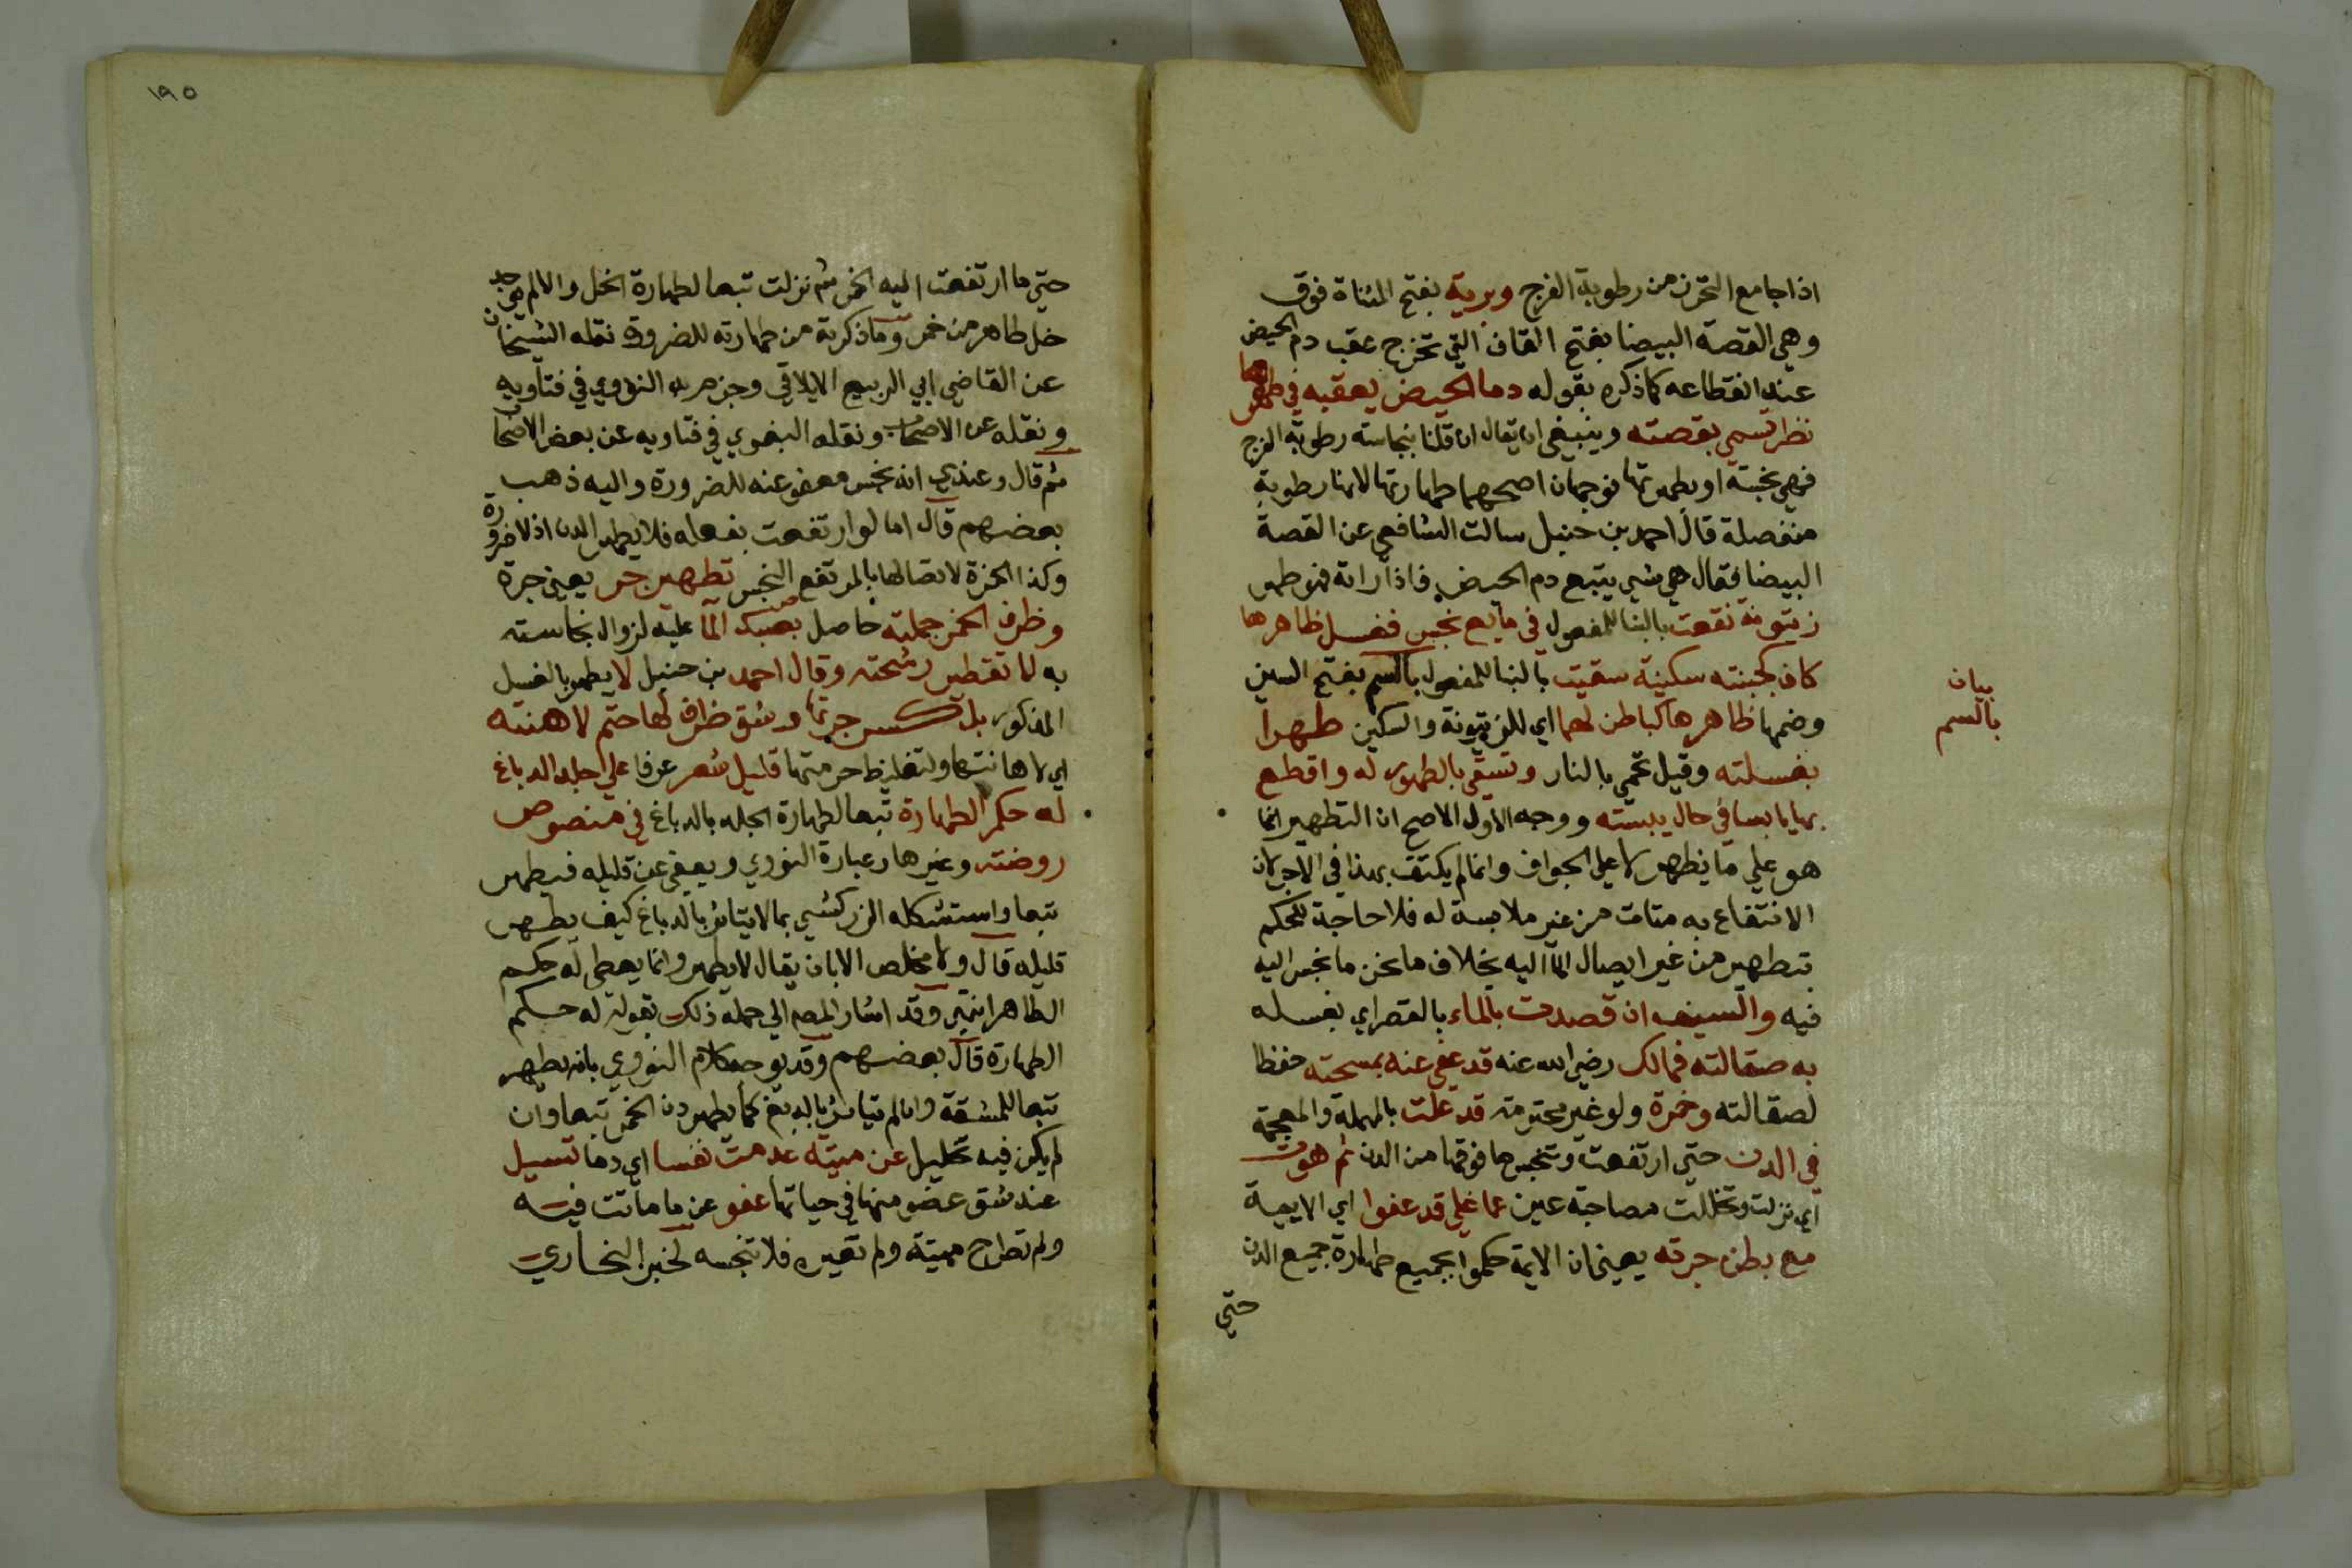 اذا جامع التحرز من رطوبة الفرج وبرية بفتح المثناة فوق
وهي القصة البيضا بفتح القاف التي تخرج عقب دم الحيض
عند انقطاعه كما ذكره بقوله دما الحيض يعقبه في طهرها
نظر تسمي بقصته وينبغي ان يقال ان قلنا بنجاسته رطوبة الفرج
فهي نجسة او بطهرتها فوجهان اصحهما طهارتها لانها رطوبة
منفصلة قال احمد بن حنبل سالت الشافعي عن القصة
البيضا فقال هي شي يتبع دم الحيض فاذا راته فهو طهر
زيتونة نقعت بالبنا للمفعول في مايع نجس فغسل ظاهرها
كاف كجبنته سكينة سقيت بالبنا للمفعول بالسم بفتح السين
وضمها ظاهرها كباطن لهما اي للزيتونة والسكين طهرا
بغسلته وقيل تحمي بالنار وتسقي بالطهور له واقطع
بها يابسا في حال يبسته ووجه الاول الاصح ان التطهير انما
هو علي ما يظهر لا علي الجواف وانما لم يكتف بهذا في الاجر لان
الانتفاع به متات من غير ملابسة له فلا حاجة للحكم
بتطهير من غير ايصال الما اليه بخلاف ما نحن ما نجس اليه
فيه والسيف ان قصدت بالماء بالقصر اي بغسله
به صقالته فمالك رضي الله عنه قد عفي عنه بمسحته حفظا
لصقالته وخمرة ولو غير محترمته قد غلت بالمهملة والمعجمة
في الدن حتي ارتفعت وتنجس ما فوقها من الدن ثم هوت
اي نزلت وتخللت مصاحبة عين عما غلي قد عفوا اي الايمة
مع بطن جرته يعني ان الايمة حكموا بجميع طهارة جميع الدن
حتي
بيان
بالسم
١٩٥
حتي ما ارتفعت اليه الخمر ثم نزلت تبعا لطهارة الخل والا لم يوجد
خل طاهر من خمر وما ذكرته من طهارته للضرورة نقله الشيخان
عن القاضي ابي الربيع الايلاقي وجزم به النووي في فتاويه
ونقله عن الاصحاب ونقله البغوي في فتاويه عن بعض الاصحاب
ثم قال وعندي انه نجس معفو عنه للضرورة واليه ذهب
بعضهم قال اما لو ارتفعت بفعله فلا يطهر الدن اذ لا ضرورة
وكذا الخمرة لاتصالها بالمرتفع النجس تطهير جر يعني جرة
وظرف الخمر جملته حاصل بصبك الما عليه لزوال نجاسته
به لا تقطير رشحته وقال احمد بن حنبل لا يطهر بالغسل
المذكور بل كسر جرتها وشق ظرف لها حتم لاهنته
اي لاهانتها ولتغليظ حرمتها قليل شعر عرفا علي جلد الدباغ
له حكم الطهارة تبعا لطهارة الجلد بالدباغ في منصوص
روضته وغيرها وعبارة النووي ويعفي عن قليله فيطهر
تبعا واستشكله الزركشي بما لا يتاثر بالدباغ كيف يطهر
قليله قال ولا مخلص الا بان يقال لا يطهر وانما يعطي له حكم
الطاهر انتهي وقد اشار المص الي جملة ذلك بقوله له حكم
الطهارة قال بعضهم وقد يوجه كلام النووي بانه يطهر
تبعا للمشقة وان لم يتاثر بالدبغ كما يطهر دن الخمر تبعا وان
لم يكن فيه تخليل عن ميتة عدمت نفسا اي دما تسيل
عند شق عضو منها في حياتها عفو عن ما ماتت فيه
ولم تطرح ميتة ولم تغيره فلا تنجسه لخبر البخاري